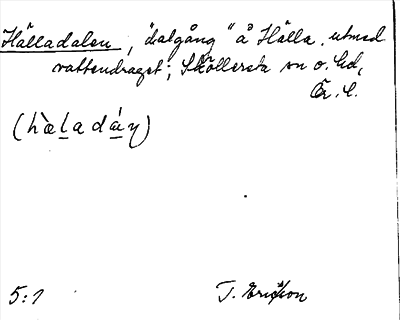 Hälladalen, "dalgång" å Hälla, utmed
vattendraget; Sköllersta sn o. hd,
Ör. l.
(hæ̀ladáɳ)
5:1 T. Ericsson